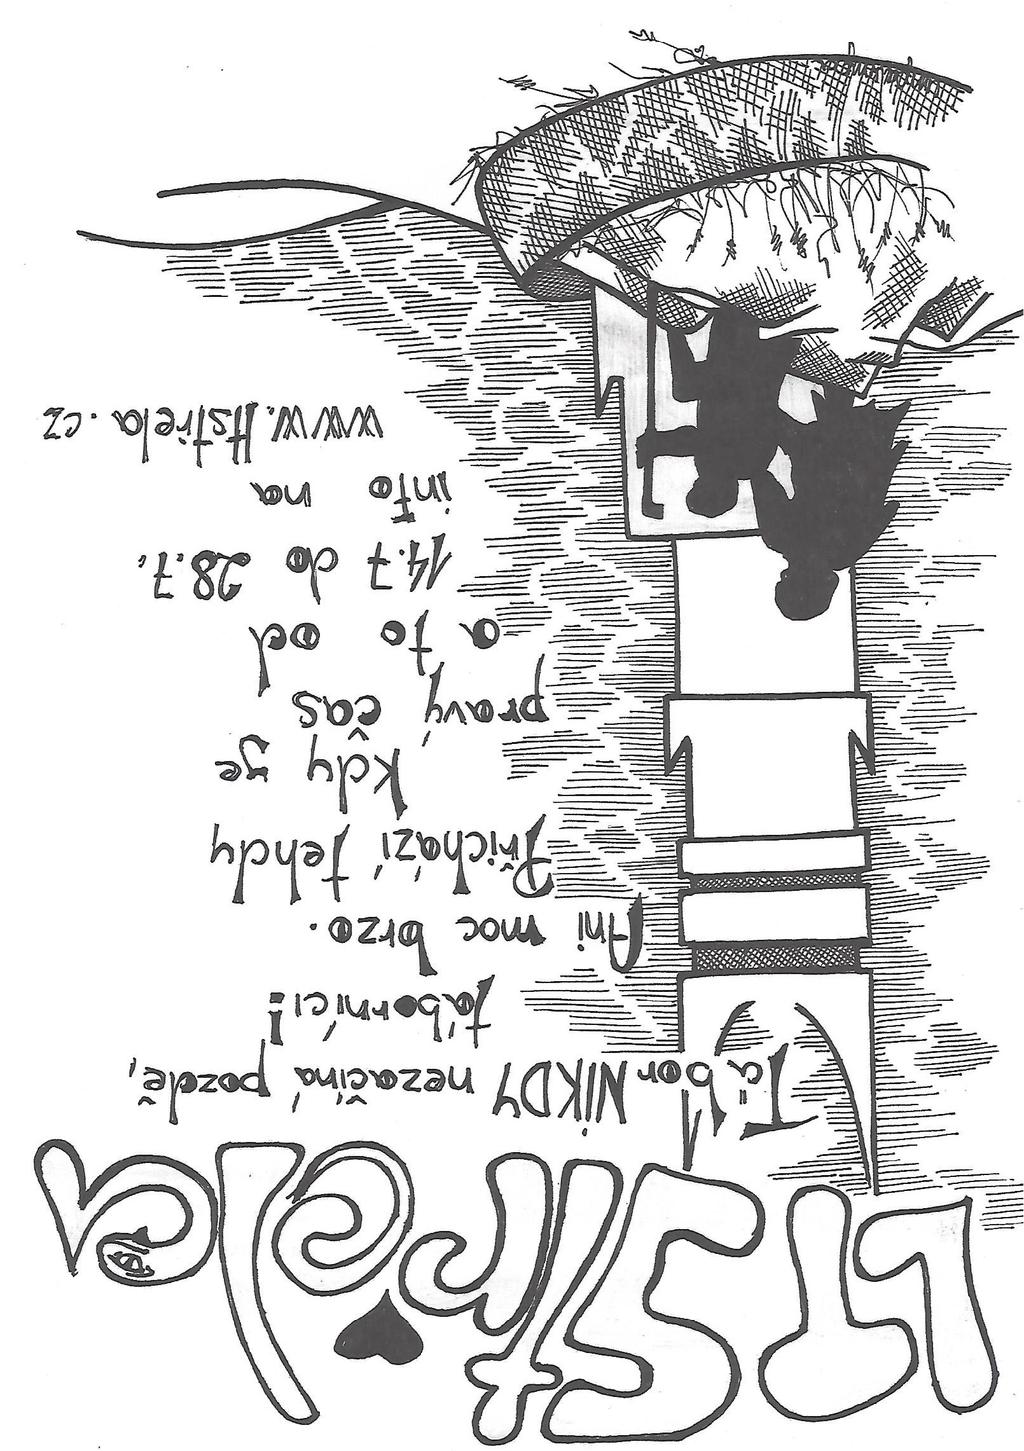 LT Střela
Tábor NIKDY nezačíná pozdě,
táborníci!
Ani moc brzo.
Přichází tehdy
kdy ye
pravý čas
a to od
14.7 do 28.7.
info na
www.ltstřela.cz